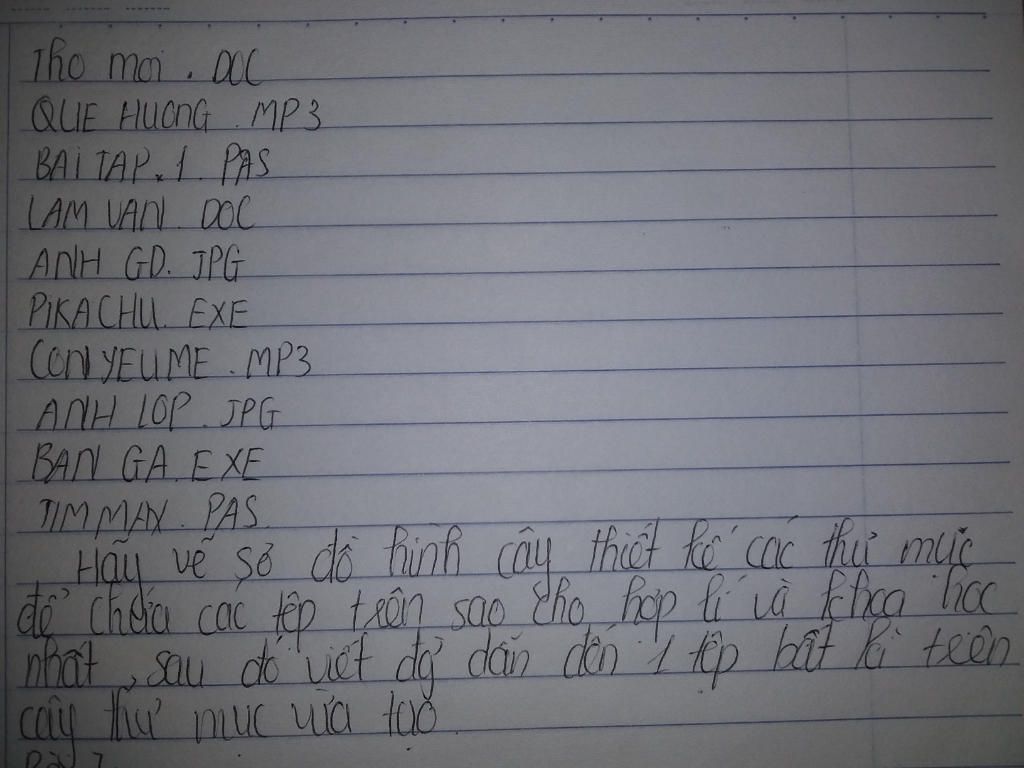 Tho moi . DOC
QUE HUONG . MP3
BAI TAP . 1 . PAS
LAM VAN . DOC
ANH GD . JPG
PIKACHU . EXE
CONYEUME . MP3
ANH LOP . JPG
BAN GA . EXE
TIMMAX . PAS
Hãy vẽ sơ đồ hình cây thiết kế các thư mục
để chứa các tệp trên sao cho hợp lí và khoa học
nhất, sau đó viết đg dẫn đến 1 tệp bất kì trên
cây thư mục vừa tạo